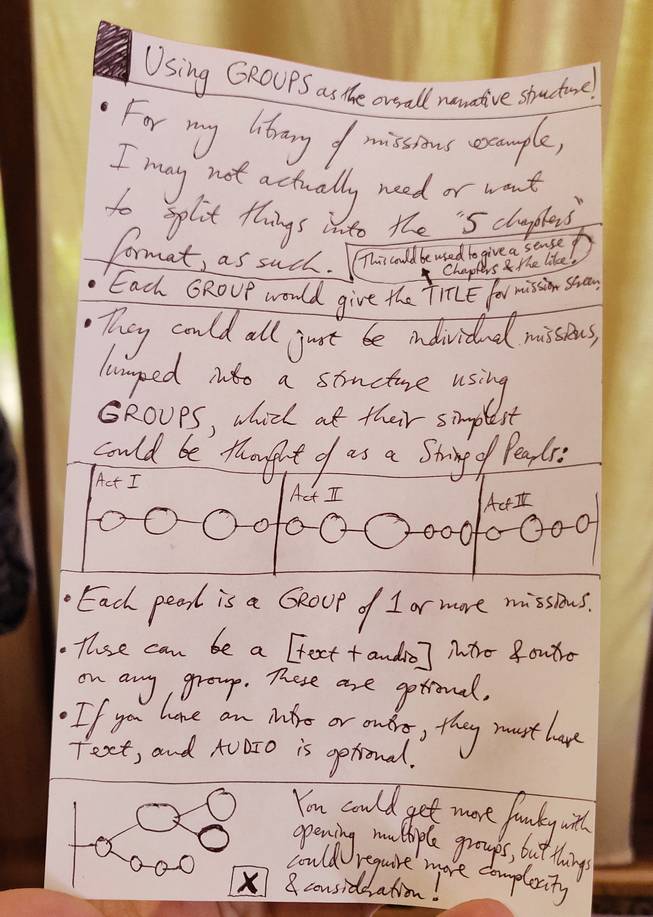 Using GROUPS as the overall narrative structure!
• For my library of missions example,
I may not actually need or want
to split things into the "5 chapters"
format, as such.
This could be used to give a sense of
Chapters & the like!
• Each GROUP would give the TITLE for mission screen.
• They could all just be individual missions,
lumped into a structure using
GROUPS, which at their simplest
could be thought of as a String of Pearls:
Act I
Act II
Act III
• Each pearl is a GROUP of 1 or more missions.
• There can be a [text + audio] intro & outro
on any group. These are optional.
• If you have an intro or outro, they must have
Text, and AUDIO is optional.
You could get more funky with
opening multiple groups, but things
could require more complexity
& consideration!
X